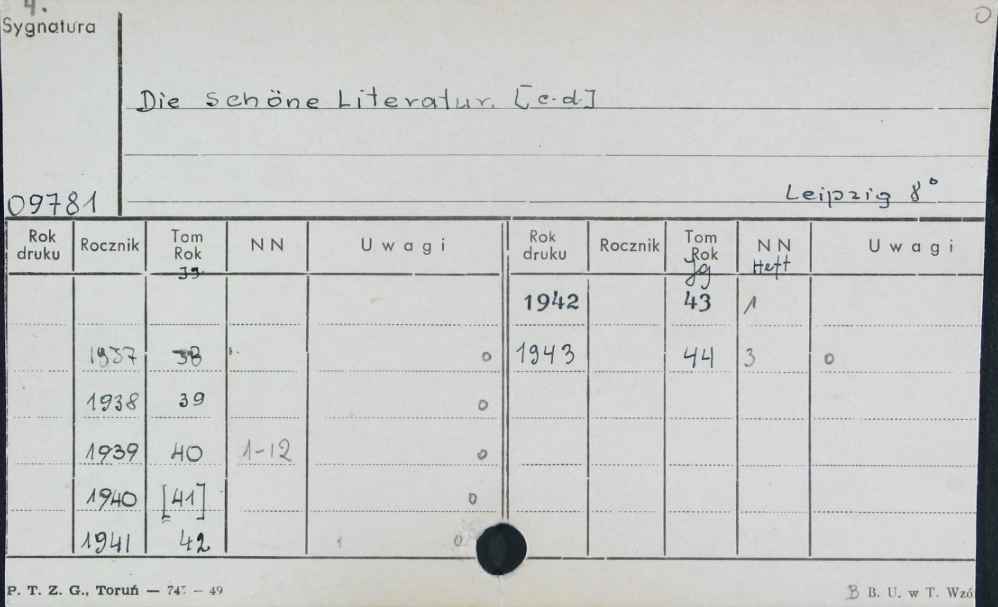 4.
Sygnatura
Die schöne Literatur. [c.d]
09781
Leipzig 8°
Rok druku Rocznik Tom Rok NN Uwagi Rok druku Rocznik Tom Rok NN Uwagi
Jg Jg Heft
1942 43 1
1937 38 o 1943 44 3 o
1938 39 o
1939 40 1-12 o
1940 [41] o
1941 42 o
P. T. Z. G., Toruń — 74 — 49
B B. U. w T. Wzó